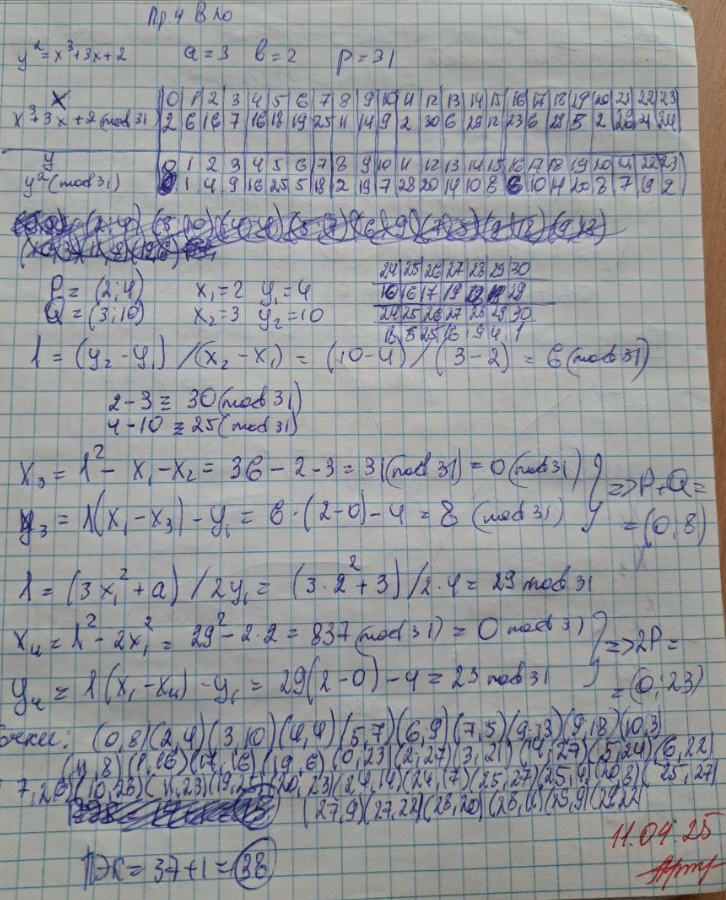 Пр.4 В 20
y² = x³+3x+2 a=3 b=2 p=31
x 0 1 2 3 4 5 6 7 8 9 10 11 12 13 14 15 16 17 18 19 20 21 22 23
x³+3x+2 (mod 31) 2 6 16 7 16 18 19 25 11 14 9 2 30 6 28 12 23 6 28 5 2 26 4 24
y 0 1 2 3 4 5 6 7 8 9 10 11 12 13 14 15 16 17 18 19 20 21 22 23
y² (mod 31) 0 1 4 9 16 25 5 18 2 19 7 28 20 14 10 8 8 10 14 20 8 7 19 2
24 25 26 27 28 29 30
P = (2;4) x₁=2 y₁=4 16 16 17 19 28 29
Q = (3;10) x₂=3 y₂=10 24 25 26 27 28 29 30
18 5 25 16 9 4 1
λ = (y₂-y₁) /(x₂-x₁) = (10-4) / (3-2) = 6 (mod 31)
2-3 ≡ 30 (mod 31)
4-10 ≡ 25 (mod 31)
x₃ = λ² - x₁ - x₂ = 36 - 2 - 3 = 31 (mod 31) = 0 (mod 31) } => P+Q =
y₃ = λ(x₁-x₃) - y₁ = 6·(2-0) - 4 = 8 (mod 31) = (0,8)
λ = (3x₁²+a) / 2y₁ = (3·2²+3) / 2·4 = 29 mod 31
x₄ = λ² - 2x₁² = 29² - 2·2 = 837 (mod 31) = 0 mod 31 } => 2P =
y₄ = λ(x₁-x₄) - y₁ = 29(2-0) - 4 = 23 mod 31 = (0;23)
очки: (0,8)(2,4)(3,10)(4,4)(5,7)(6,9)(7,5)(9,13)(9,18)(10,3)
(11,8)(17,16)(19,6)(0,23)(2,27)(3,21)(4,27)(5,24)(6,22)
7,26)(10,28)(11,23)(19,25)(20,23)(24,14)(24,17)(25,27)(25,4)(20,8)(25,27)
(27,9)(27,22)(28,20)(28,11)(29,9)(29,22)
ПЭК = 37+1 = 38
11.04.25